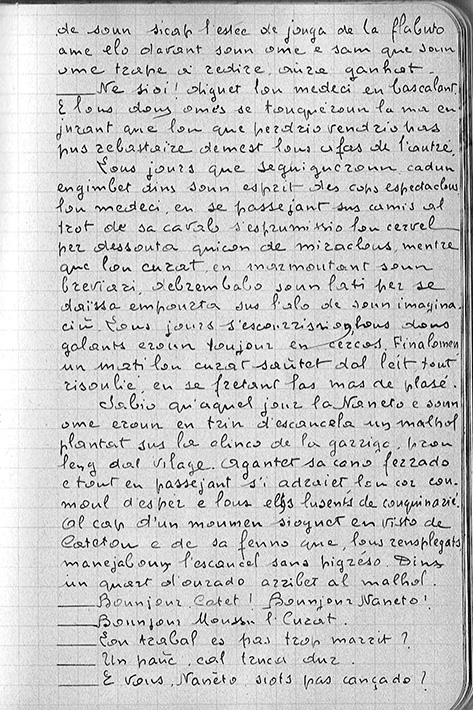 de soun sicap l'estec de jouga de la flabuto
ame elo davant soun ome e sam que soun
ome trape à redire, aura ganhat.
— Ne sioi! diguet lou medeci en bascalant.
E lous dous omes se touquèroun la ma en
jurant que lou que perdrio vendrio pas
pus rebastaire demest lous afas de l'autre.
Lous jours que seguigueroun, cadun
engimbet dins soun esprit des cops espectaclous
lou medeci, en se passejant sus camis al
trot de sa cavalo s'esprumissio lou cervel
per dessouta quicon de miraclous, mentre
que lou curat, en marmoutant soun
breviari, debrembabo soun lati per se
daissa empourta sus l'alo de soun imagina-
ciu. Lous jours s'escourrission, lous dous
galants eroun toujour en cercos. Finalomen
un mati lou curat sautet dal leit tout
risoulié, en se fretant las mas de plasé.
Sabio qu'aquel jour la Naneto e soun
ome eroun en trin d'escaucela un malhol
plantat sus la clinco de la garrigo, prou
leng dal vilage. Agantet sa cano ferrado
e tout en passejant s'i adraiet lou cor con-
moul d'esper e lous elhs lusents de couquinarié.
Al cap d'un moumen sioguet en visto de
Catetou e de sa fenno que, lous rensplegats
manejaboun l'escaucel sans pigresso. Dins
un quart d'ourado arribet al malhol.
— Bounjour, Catet! Bounjour Naneto!
— Bounjour Moussu l'Curat.
— Lou trabal es pas trop marrit?
— Un pauc, cal truca dur.
— E vous, Naneto, siots pas cançado?